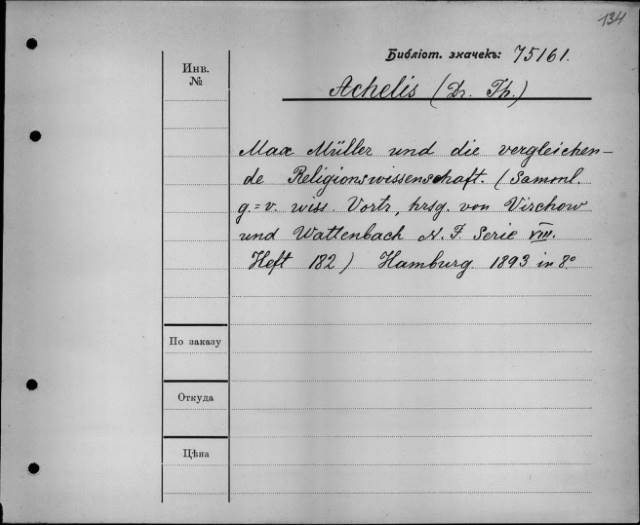 134
Библіот. значекъ: 75161.
Инв.
№
Achelis (Dr. Th.)
Max Müller und die vergleichen-
de Religionswissenschaft. (Samml.
g.=v. wiss. Vortr, hrsg. von Virchow
und Wattenbach N. F. Serie VIII.
Heft 182) Hamburg 1893 in 8°
По заказу
Откуда
Цѣна